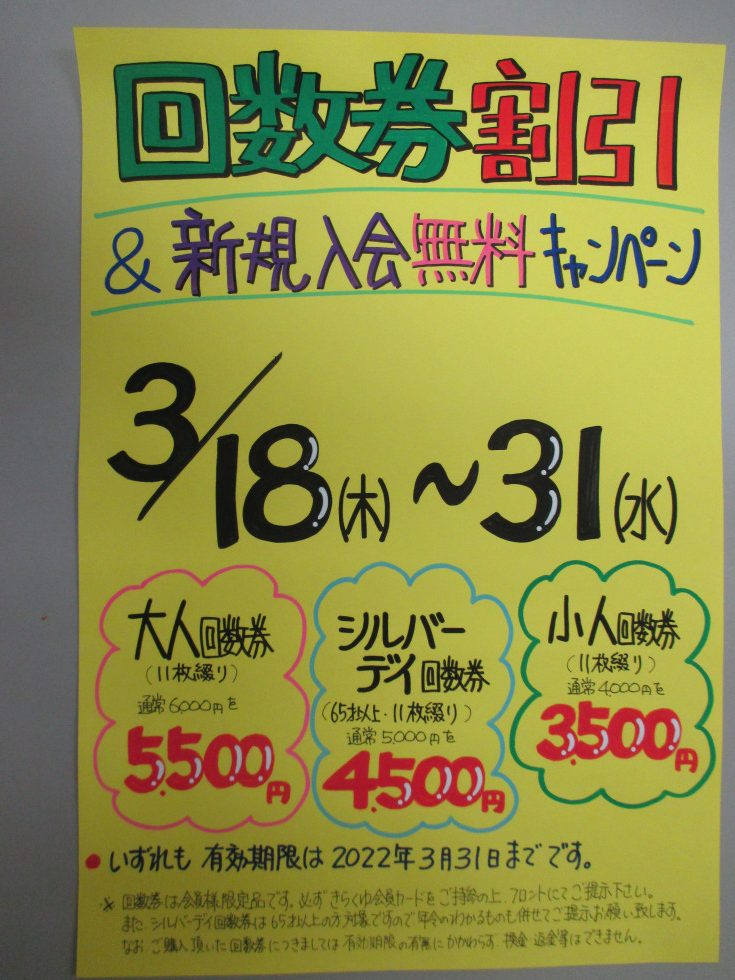 回数券割引
&新規入会無料キャンペーン
3/18(木)~31(水)
大人回数券
(11枚綴り)
通常6,000円を
5,500円
シルバー
デイ回数券
(65才以上・11枚綴り)
通常5,000円を
4,500円
小人回数券
(11枚綴り)
通常4,000円を
3,500円
●いずれも 有効期限は2022年3月31日までです。
※ 回数券は会員様限定品です。必ずきらくゆ会員カードをご持参の上、フロントにてご提示下さい。
また、シルバーデイ回数券は65才以上の方対象ですので年令のわかるものも併せてご提示お願い致します。
なお、ご購入頂いた回数券につきましては有効期限の有無にかかわらず、換金、返金等はできません。